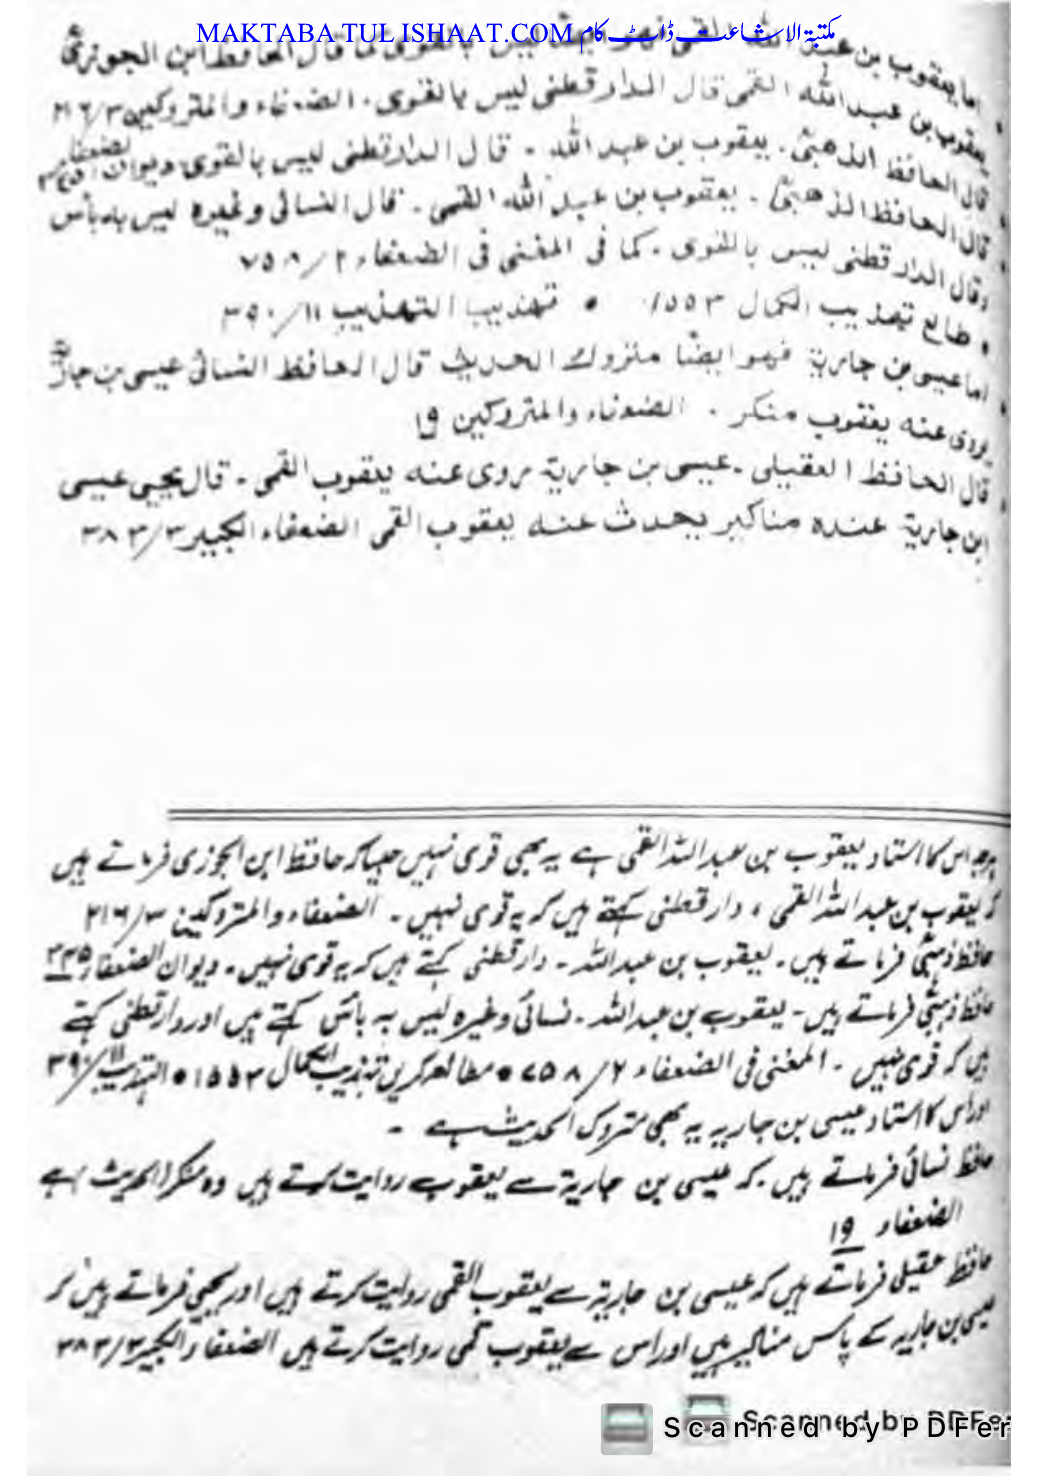 MAKTABA TUL ISHAAT.COM مکتبۃ الاشاعت ڈاٹ کام
اما يعقوب بن عبد الله القمى فهو ليس بالقوى كما قال الحافظ ابن الجوزىؒ
يعقوب بن عبد الله القمى قال الدار قطنى ليس بالقوى . الضعفاء والمتروكين ۳/۲۱۶
قال الحافظ الذهبىؒ . يعقوب بن عبد الله . قال الدار قطنى ليس بالقوى ديوان الضعفاء
قال الحافظ الذهبىؒ . يعقوب بن عبد الله القمى . قال النسائى وغيره ليس به بأس
وقال الدار قطنى ليس بالقوى . كما فى المغنى فى الضعفاء ۲/۷۵۸
• طالع تهذيب الكمال ۱۵۵۳ • تهذيب التهذيب ۱۱/۳۹۰
اما عيسى بن جارية فهو ايضًا متروك الحديث قال الحافظ النسائى عيسى بن جارية
يروى عنه يعقوب منكر . الضعفاء والمتروكين ۱۹
قال الحافظ العقيلى . عيسى بن جارية روى عنه يعقوب القمى . قال يحيى عيسى
ابن جارية عنده مناكير يحدث عنه يعقوب القمى الضعفاء الكبير ۳/۳۸۳
اس کا استاد یعقوب بن عبد اللہ القمی ہے یہ بھی قوی نہیں جیسا کہ حافظ ابن الجوزی فرماتے ہیں
کہ یعقوب بن عبد اللہ القمی ، دار قطنی کہتے ہیں کہ یہ قوی نہیں ۔ الضعفاء والمتروکین ۳/۲۱۶
حافظ ذہبیؒ فرماتے ہیں ۔ یعقوب بن عبد اللہ ۔ دار قطنی کہتے ہیں کہ یہ قوی نہیں ۔ دیوان الضعفاء
حافظ ذہبیؒ فرماتے ہیں ۔ یعقوب بن عبد اللہ ۔ نسائی وغیرہ لیس بہ بأس کہتے ہیں اور دار قطنی کہتے
ہیں کہ قوی نہیں ۔ المغنی فی الضعفاء ۲/۷۵۸ • مطالعہ کریں تہذیب الکمال ۱۵۵۳ • التہذیب ۱۱/۳۹۰
اور اس کا استاد عیسی بن جاریہ یہ بھی متروک الحدیث ہے ۔
حافظ نسائی فرماتے ہیں کہ عیسی بن جاریۃ سے یعقوب روایت کرتے ہیں وہ منکر الحدیث ہے
الضعفاء ۱۹
حافظ عقیلی فرماتے ہیں کہ عیسی بن جاریۃ سے یعقوب القمی روایت کرتے ہیں اور یحیی فرماتے ہیں کہ
عیسی بن جاریہ کے پاس مناکیر ہیں اور اس سے یعقوب قمی روایت کرتے ہیں الضعفاء الکبیر ۳/۳۸۳
Scanned by PDFer
Scanned by PDFer